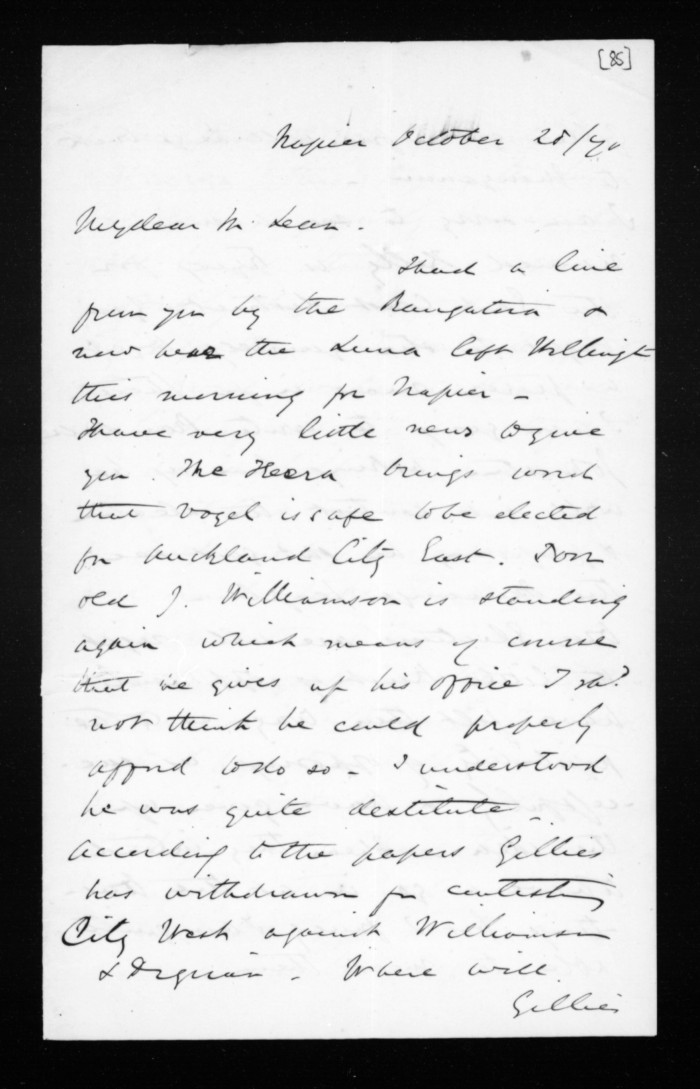 [85]
Napier October 28/70
My dear McLean.
I had a line
from you by the Rangatira &
now hear the Luna left Wellingt
this morning for Napier -
I have very little news to give
you. The Heera brings word
that Vogel is safe to be elected
for Auckland City East.
old J. Williamson is standing
again which means of course
that he gives up his office I shd.
not think he could properly
afford to do so - I understood
he was quite destitute -
According to the papers Gillies
has withdrawn fr contesting
City West against Williamson
& Dignan - Where will
Gillies